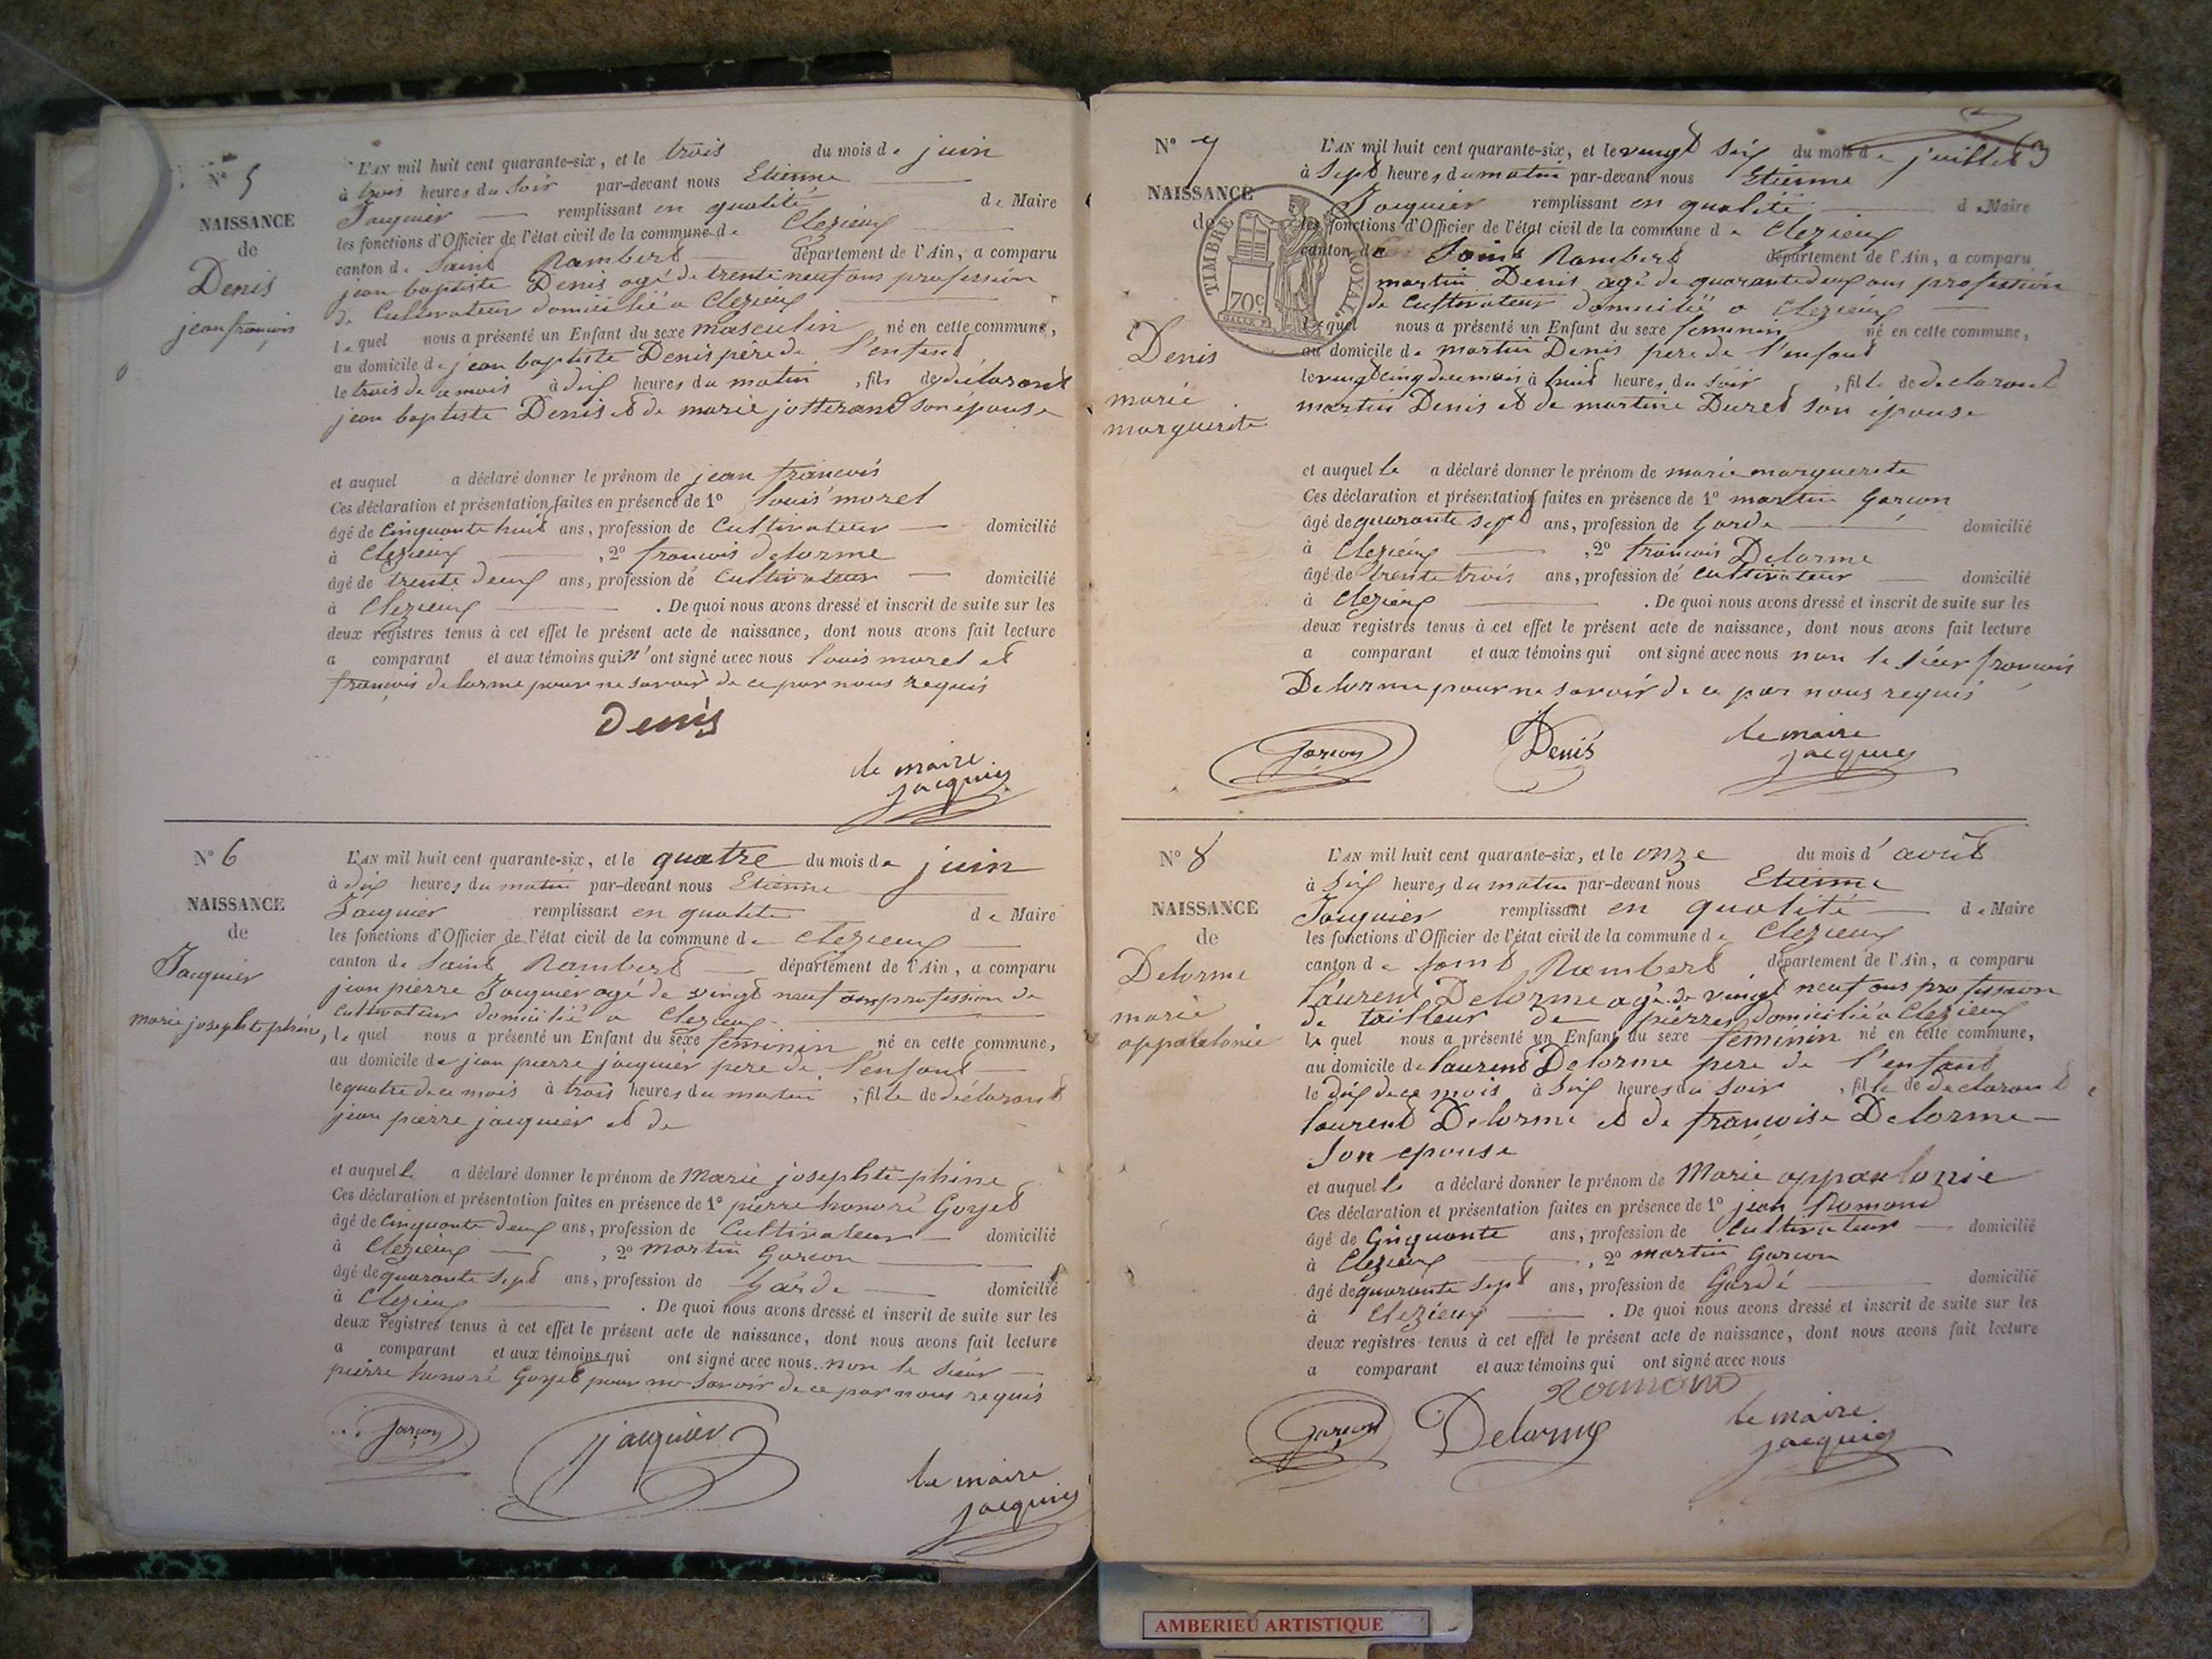 N° 5
NAISSANCE
de
Denis
jean françois
L'AN mil huit cent quarante-six, et le trois du mois de juin
à trois heures du soir par-devant nous Etienne
Jacquier remplissant en qualité de Maire
les fonctions d'Officier de l'état civil de la commune de Clezieux
canton de Saint Rambert département de l'Ain, a comparu
jean baptiste Denis agé de trente neuf ans profession
de Cultivateur domicilié a Clezieux
lequel nous a présenté un Enfant du sexe masculin né en cette commune,
au domicile de jean baptiste Denis père de l'enfant
le trois de ce mois à dix heures du matin , fils de declarant
jean baptiste Denis et de marie jotterand son épouse
et auquel a déclaré donner le prénom de jean francois
Ces déclaration et présentation faites en présence de 1° Louis moret
âgé de Cinquante huit ans, profession de Cultivateur domicilié
à Clezieux , 2° francois delorme
âgé de trente deux ans, profession de cultivateur domicilié
à Clezieux . De quoi nous avons dressé et inscrit de suite sur les
deux registres tenus à cet effet le présent acte de naissance, dont nous avons fait lecture
a comparant et aux témoins qui n'ont signé avec nous Louis moret et
françois delorme pour ne savoir de ce par nous requis
Denis
le maire
jacquier
N° 6
NAISSANCE
de
Jacquier
marie josephte phine,
L'AN mil huit cent quarante-six, et le quatre du mois de juin
à dix heures du matin par-devant nous Etienne
Jacquier remplissant en qualité de Maire
les fonctions d'Officier de l'état civil de la commune de Clezieux
canton de Saint Rambert département de l'Ain, a comparu
jean pierre Jacquier agé de vingt neuf ans profession de
cultivateur domicilié a Clezieux
lequel nous a présenté un Enfant du sexe féminin né en cette commune,
au domicile de jean pierre jacquier pere de l'enfant
le quatre de ce mois à trois heures du matin , fille de declarant
jean pierre jacquier et de
et auquelle a déclaré donner le prénom de Marie josephte-phine
Ces déclaration et présentation faites en présence de 1° pierre honoré Goyet
âgé de Cinquante deux ans, profession de Cultivateur domicilié
à Clezieux , 2° martin Garcon
âgé de quarante sept ans, profession de Garde domicilié
à Clezieux . De quoi nous avons dressé et inscrit de suite sur les
deux registres tenus à cet effet le présent acte de naissance, dont nous avons fait lecture
a comparant et aux témoins qui ont signé avec nous non le sieur
pierre honoré Goyet pour ne savoir de ce par nous requis
Garcon
jacquier
le maire
jacquier
N° 7
NAISSANCE
de
Denis
marie
marguerite
TIMBRE ROYAL
70 c.
L'AN mil huit cent quarante-six, et le vingt six du mois de juillet
à Sept heures du matin par-devant nous Etienne
Jacquier remplissant en qualité de Maire
les fonctions d'Officier de l'état civil de la commune de Clezieux
canton de Saint Rambert département de l'Ain, a comparu
martin Denis agé de quarante deux ans profession
de Cultivateur domicilié a Clezieux
lequel nous a présenté un Enfant du sexe feminin né en cette commune,
au domicile de martin Denis pere de l'enfant
le vingt cinq de ce mois à huit heures du soir , fille de declarant
martin Denis et de martine Duret son épouse
et auquelle a déclaré donner le prénom de marie marguerite
Ces déclaration et présentation faites en présence de 1° martin Garçon
âgé de quarante sept ans, profession de Garde domicilié
à Clezieux , 2° francois Delorme
âgé de trente trois ans, profession de cultivateur domicilié
à Clezieux . De quoi nous avons dressé et inscrit de suite sur les
deux registres tenus à cet effet le présent acte de naissance, dont nous avons fait lecture
a comparant et aux témoins qui ont signé avec nous non le sieur françois
Delorme pour ne savoir de ce par nous requis
Garcon
Denis
le maire
jacquier
N° 8
NAISSANCE
de
Delorme
marie
appaulonie
L'AN mil huit cent quarante-six, et le onze du mois d'août
à Six heures du matin par-devant nous Etienne
Jacquier remplissant en qualité de Maire
les fonctions d'Officier de l'état civil de la commune de Clezieux
canton de Saint Rambert département de l'Ain, a comparu
Laurent Delorme agé de vingt neuf ans profession
de tailleur de pierres domicilié a Clezieux
lequel nous a présenté un Enfant du sexe féminin né en cette commune,
au domicile de laurent Delorme pere de l'enfant
le dix de ce mois à Six heures du soir , fille de declarant
laurent Delorme et de françoise Delorme
son epouse
et auquelle a déclaré donner le prénom de Marie appaulonie
Ces déclaration et présentation faites en présence de 1° jean Romand
âgé de Cinquante ans, profession de Cultivateur domicilié
à Clezieux , 2° martin Garcon
âgé de quarante sept ans, profession de Garde domicilié
à Clezieux . De quoi nous avons dressé et inscrit de suite sur les
deux registres tenus à cet effet le présent acte de naissance, dont nous avons fait lecture
a comparant et aux témoins qui ont signé avec nous
Romand
Garcon
Delorme
le maire
jacquier
AMBERIEU ARTISTIQUE